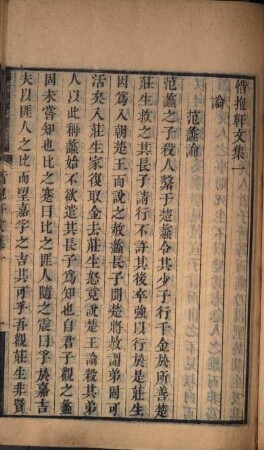 惜抱軒文集一
論
范蠡論
范蠡之子殺人繫于楚蠡令其少子行千金於所善楚
莊生救之其長子請行不許其後卒強以行於是莊生
因為入朝楚王而說之赦蠡長子聞楚將赦謂弟固可
活矣入莊生家復取金去莊生怒竟說楚王論殺其弟
人以此稱蠡始不欲遣其長子為知也自君子觀之蠡
固未嘗知也比之爻曰比之匪人隨之爻曰孚於嘉吉
夫以匪人之比而望嘉孚之吉其可乎吾觀莊生非賢